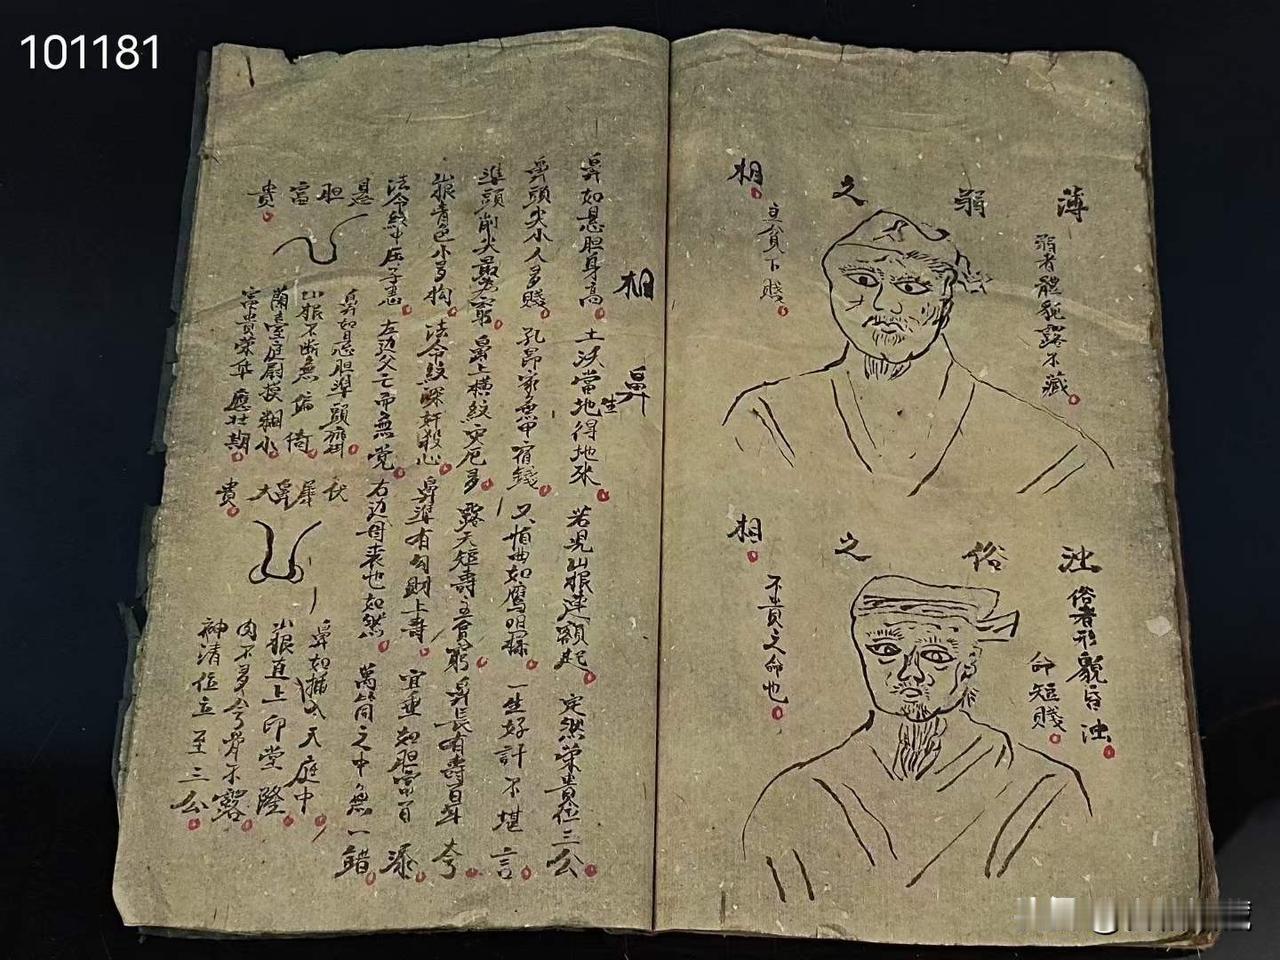 101181
薄弱之相
弱者體貌露不藏
主貧下賤
浊俗之相
俗者形貌旨浊
命短賤
不貴之命也
相鼻
鼻如悬胆身高 土沃當生地得地來 若見山根連額起 定然榮貴位三公
鼻頭尖小人多賤 孔昂家無甲宿錢 又慎曲如鹰咀 一生好計不堪言
準頭削尖最窮 鼻上横紋灾厄多 露天矩壽主貧窮 鼻長有壽
山根青色小多拘 法令紋深奸殺心 鼻準有勾財上壽 宜垂如胆富百添
法令紋中压子患 左边父亡而無觉 右边母丧也如然 萬箇之中無一錯
悬胆富貴
鼻如悬胆準頭齊
山根不断無偏倚
蘭臺庭尉模糊小
富貴榮華應壮期
伏犀鼻大貴
鼻如插入天庭中
山根直上印堂隆
肉不多兮骨不露
神清位立至三公